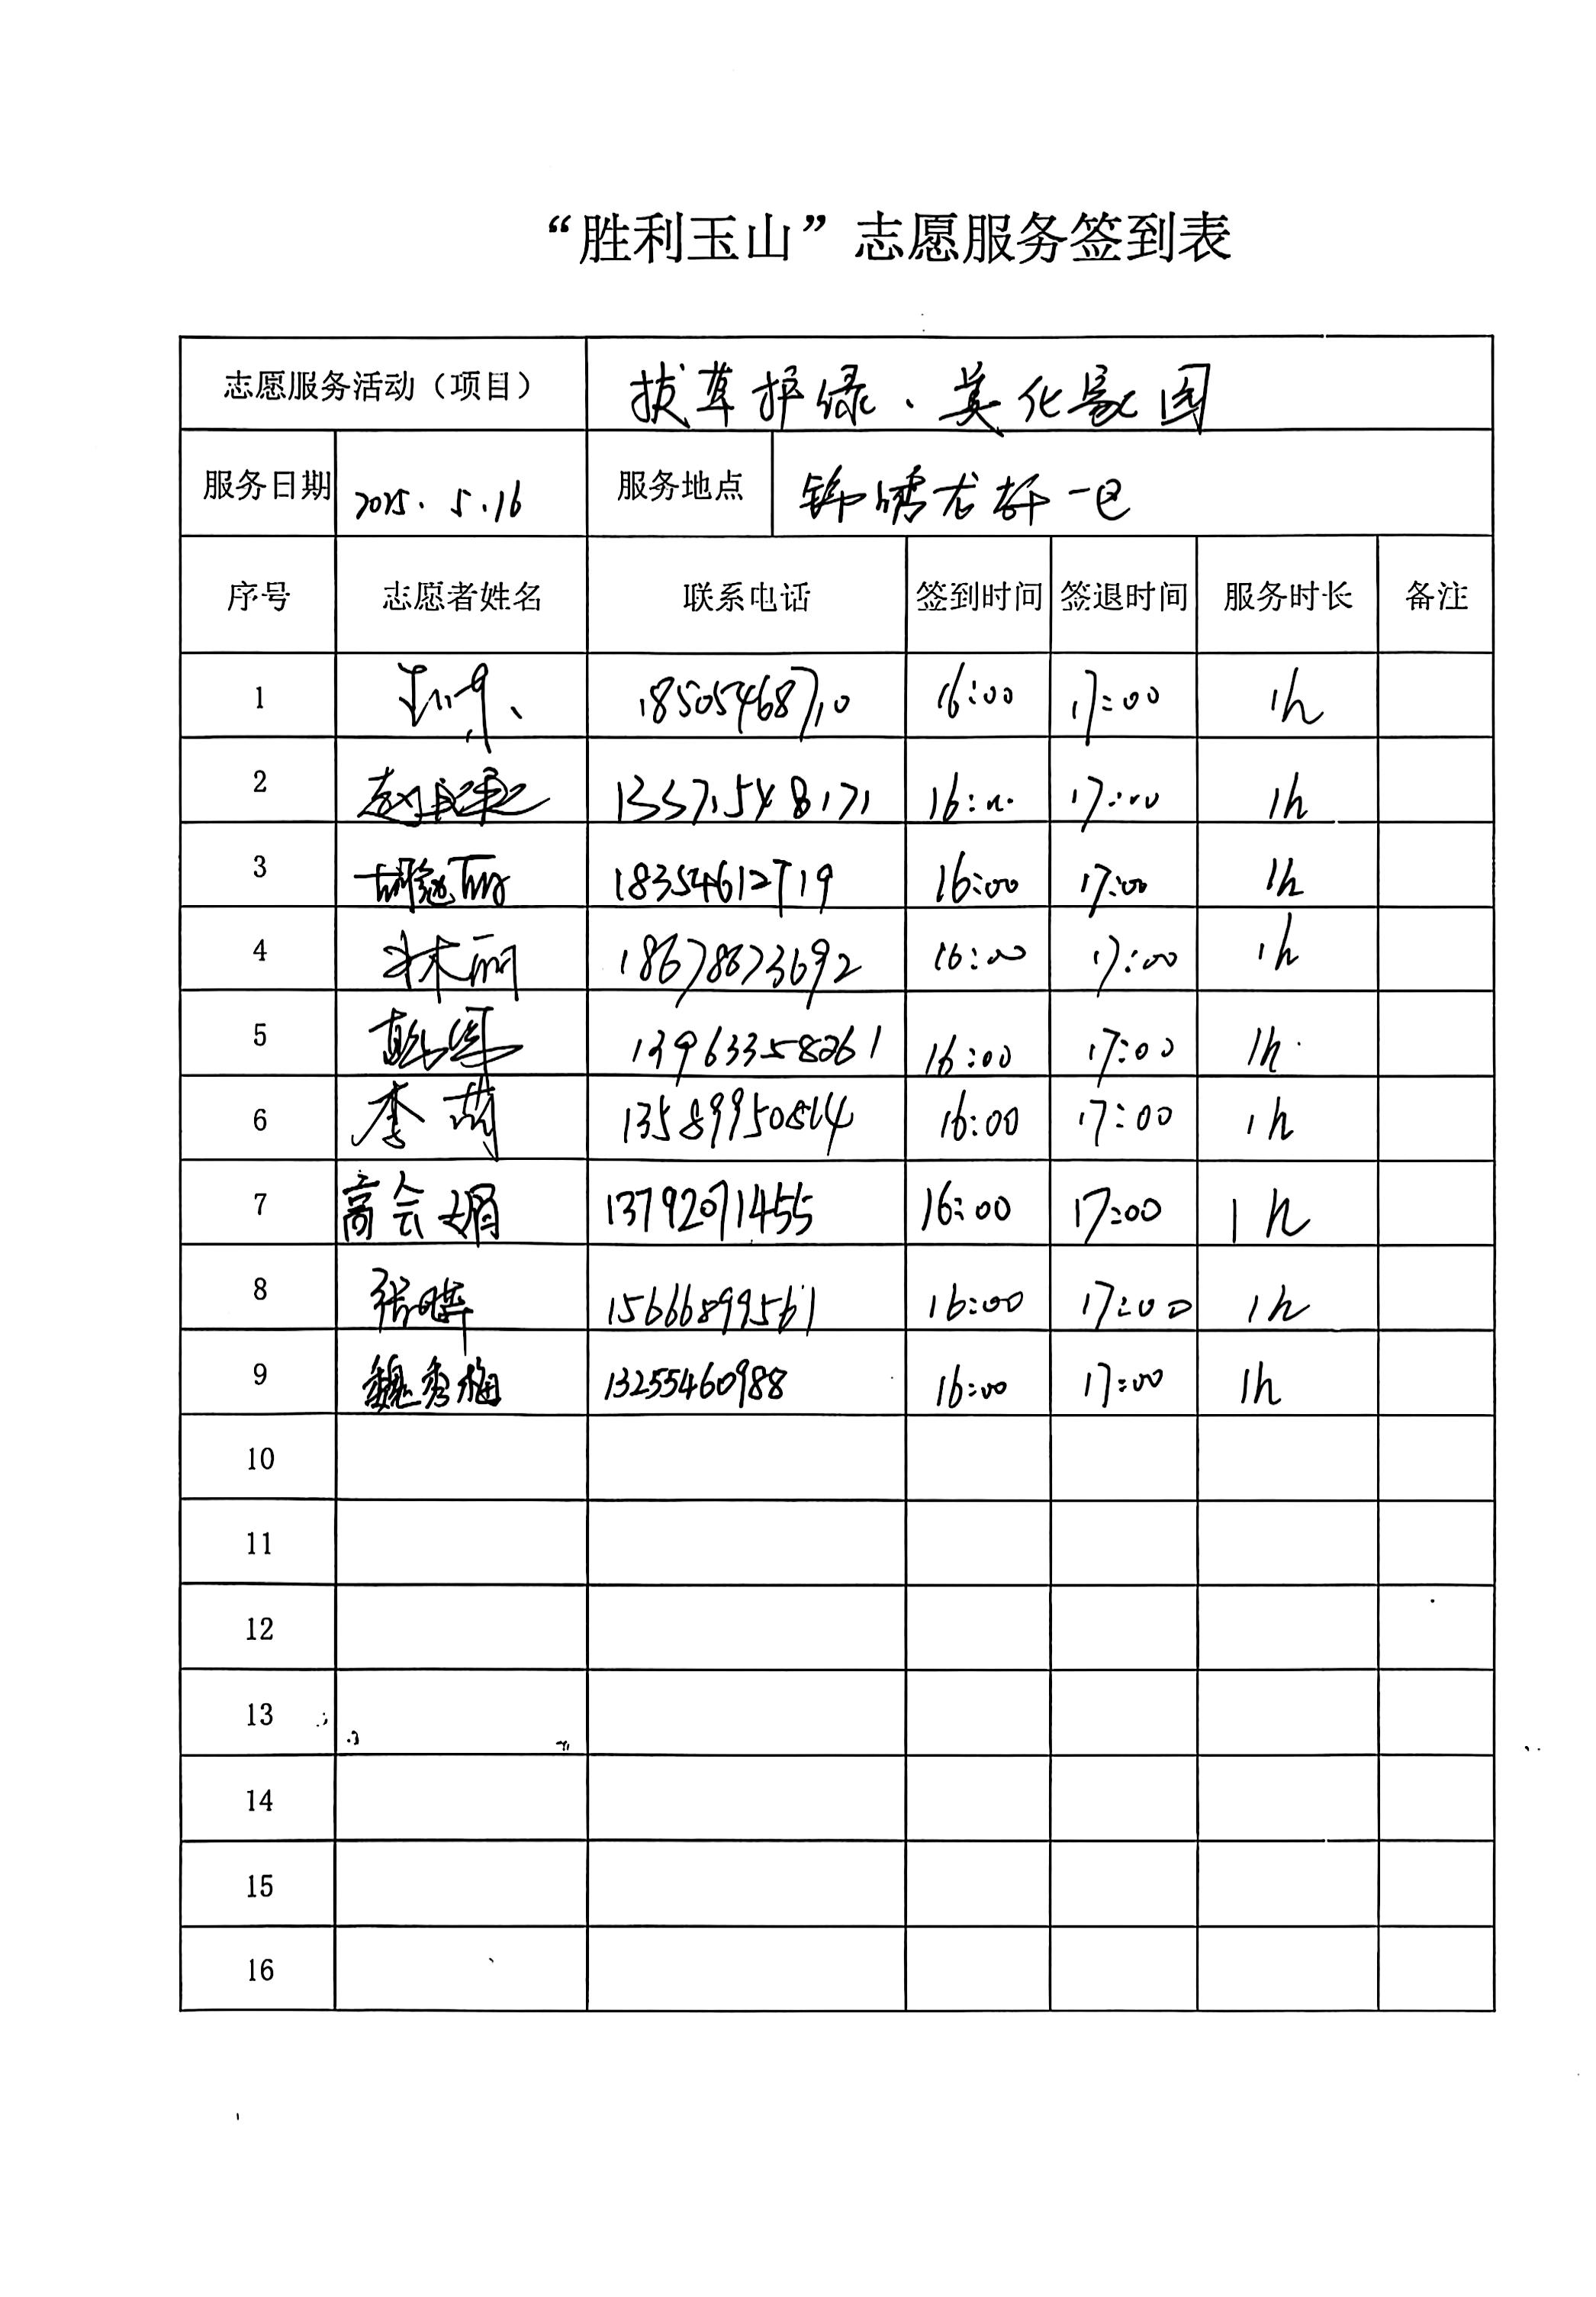 “胜利玉山”志愿服务签到表
志愿服务活动（项目） 拔草护绿、美化家园
服务日期 2025.5.16 服务地点 锦绣龙轩一区
序号 志愿者姓名 联系电话 签到时间 签退时间 服务时长 备注
1 18505468710 16:00 17:00 1h
2 13371548171 16:00 17:00 1h
3 18354612719 16:00 17:00 1h
4 18678873692 16:00 17:00 1h
5 13963358261 16:00 17:00 1h
6 李茜 13589950814 16:00 17:00 1h
7 高会娟 13792071455 16:00 17:00 1h
8 张晔 15666899561 16:00 17:00 1h
9 魏秀梅 13255460988 16:00 17:00 1h
10
11
12
13
14
15
16